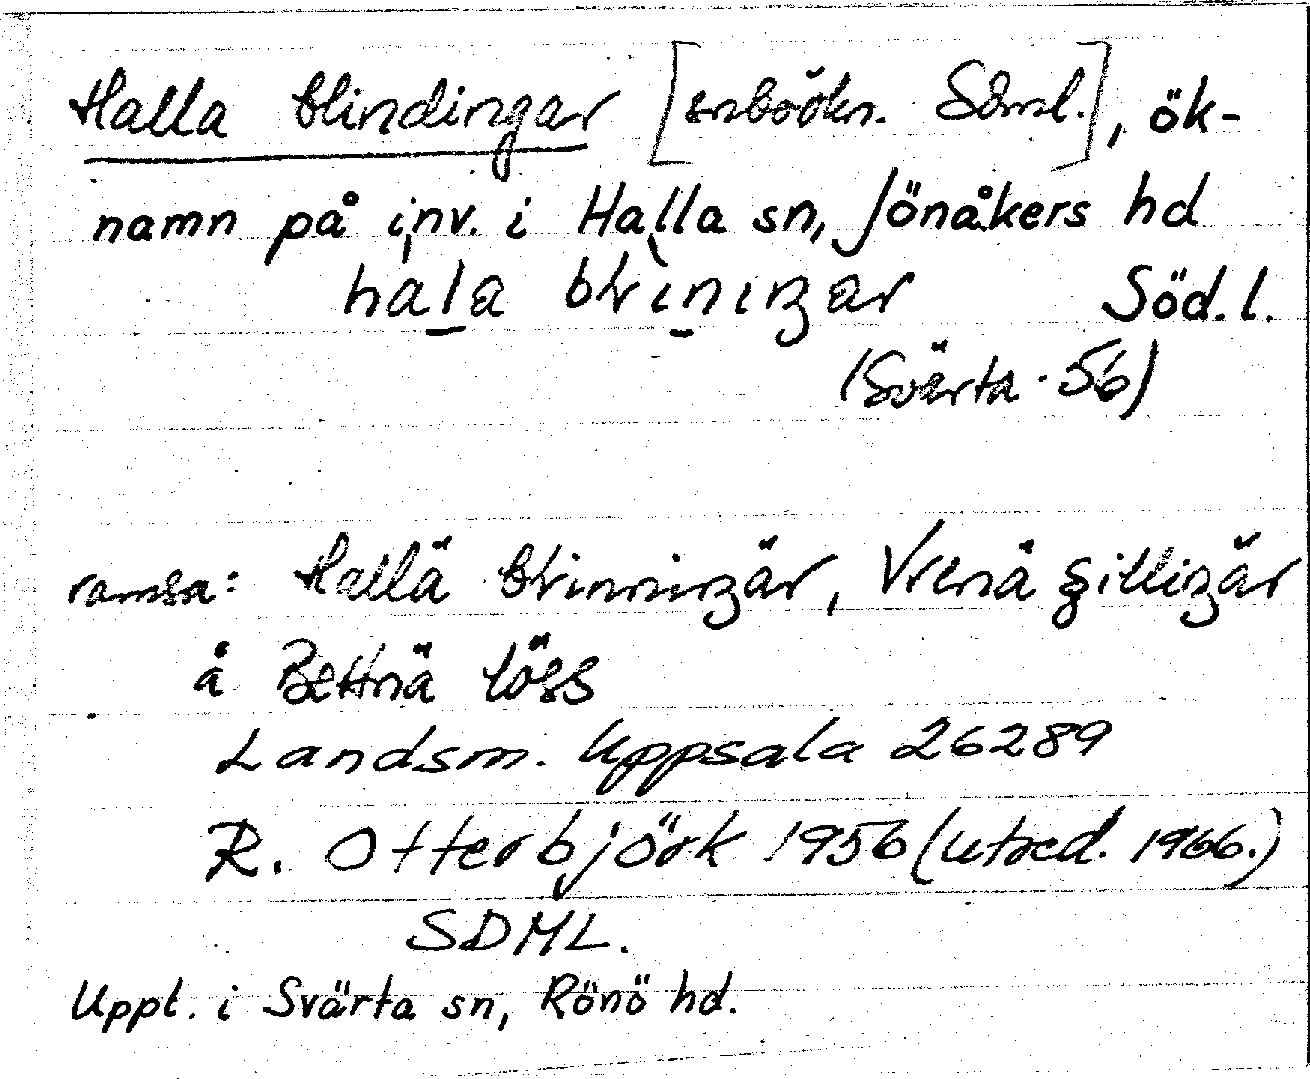 Halla blindingar [snböökn. Söml.], ök-
namn på inv. i Halla sn, Jönåkers hd
Söd. l.
(Svärta 56)
ramsa: Hallä blinningär, Vrenä gillingär
å Bettnä löss
Landsm. Uppsala 26289
R. Otterbjörk 1956 (utred. 1966.)
SDML.
Uppt. i Svärta sn, Rönö hd.